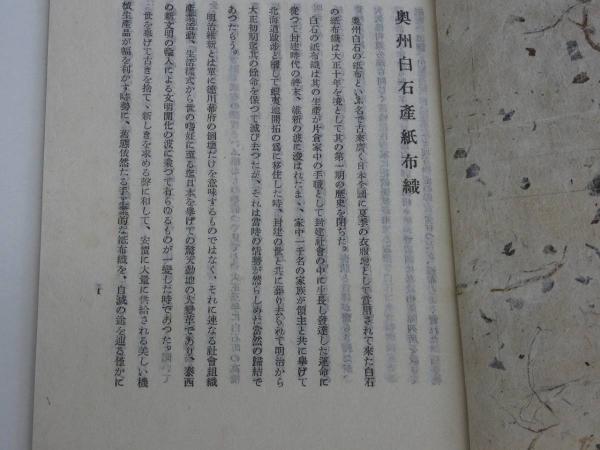 奥州白石産紙布織
奥州白石の紙布といふ名で古来広く日本全国に夏季の衣服地として賞用されて来た白石
の紙布織は大正十年を境として其の第一期の歴史を閉ぢた。
白石の紙布織は其の生産が片倉家中の手職として封建社会の中に生長し発達した運命に
従つて封建時代の終末、維新の波に漫はれたまゝ、家中一千名の家族が領主と共に挙げて
北海道政渉と称して蝦夷地開拓の為に移住した時、封建の世と共に葬り去られて明治から
大正初期迄其の余命を保つて滅び去つたが、それは当時の情勢が然らしめた当然の帰結で
あつたらう。
明治維新とは単に徳川幕府の倒壊だけを意味するものではなく、それに連なる社会組織
産業活動、生活様式から世の嗜好に至る迄日本を挙げての驚天動地の大変革であり、泰西
の新文明の輸入による文明開化の波に乗つて有らゆるものが一変した時であつた。
世を挙げて古きを捨て、新しきを求める声に和して、安価に大量に供給される美しい機
械生産品が幅を利かす時勢に、旧態依然たる手工業的な紙布織を、自滅の途を辿る僅かに